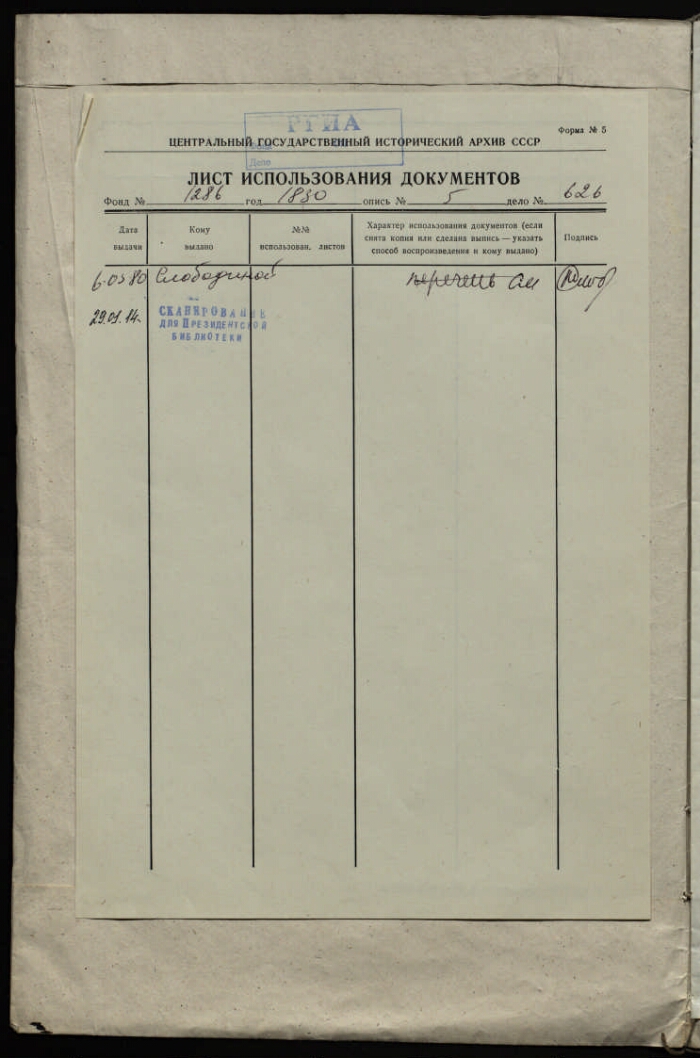 РГИА
Форма № 5
ЦЕНТРАЛЬНЫЙ ГОСУДАРСТВЕННЫЙ ИСТОРИЧЕСКИЙ АРХИВ СССР
Дело
ЛИСТ ИСПОЛЬЗОВАНИЯ ДОКУМЕНТОВ
Фонд № 1286 год 1830 опись № 5 дело № 626
Дата выдачи
Кому выдано
№№ использован. листов
Характер использования документов (если снята копия или сделана выпись — указать способ воспроизведения и кому выдано)
Подпись
6.05 80 Слободиной перечень
29.01.14.
СКАНИРОВАНИЕ
ДЛЯ ПРЕЗИДЕНТСКОЙ
БИБЛИОТЕКИ